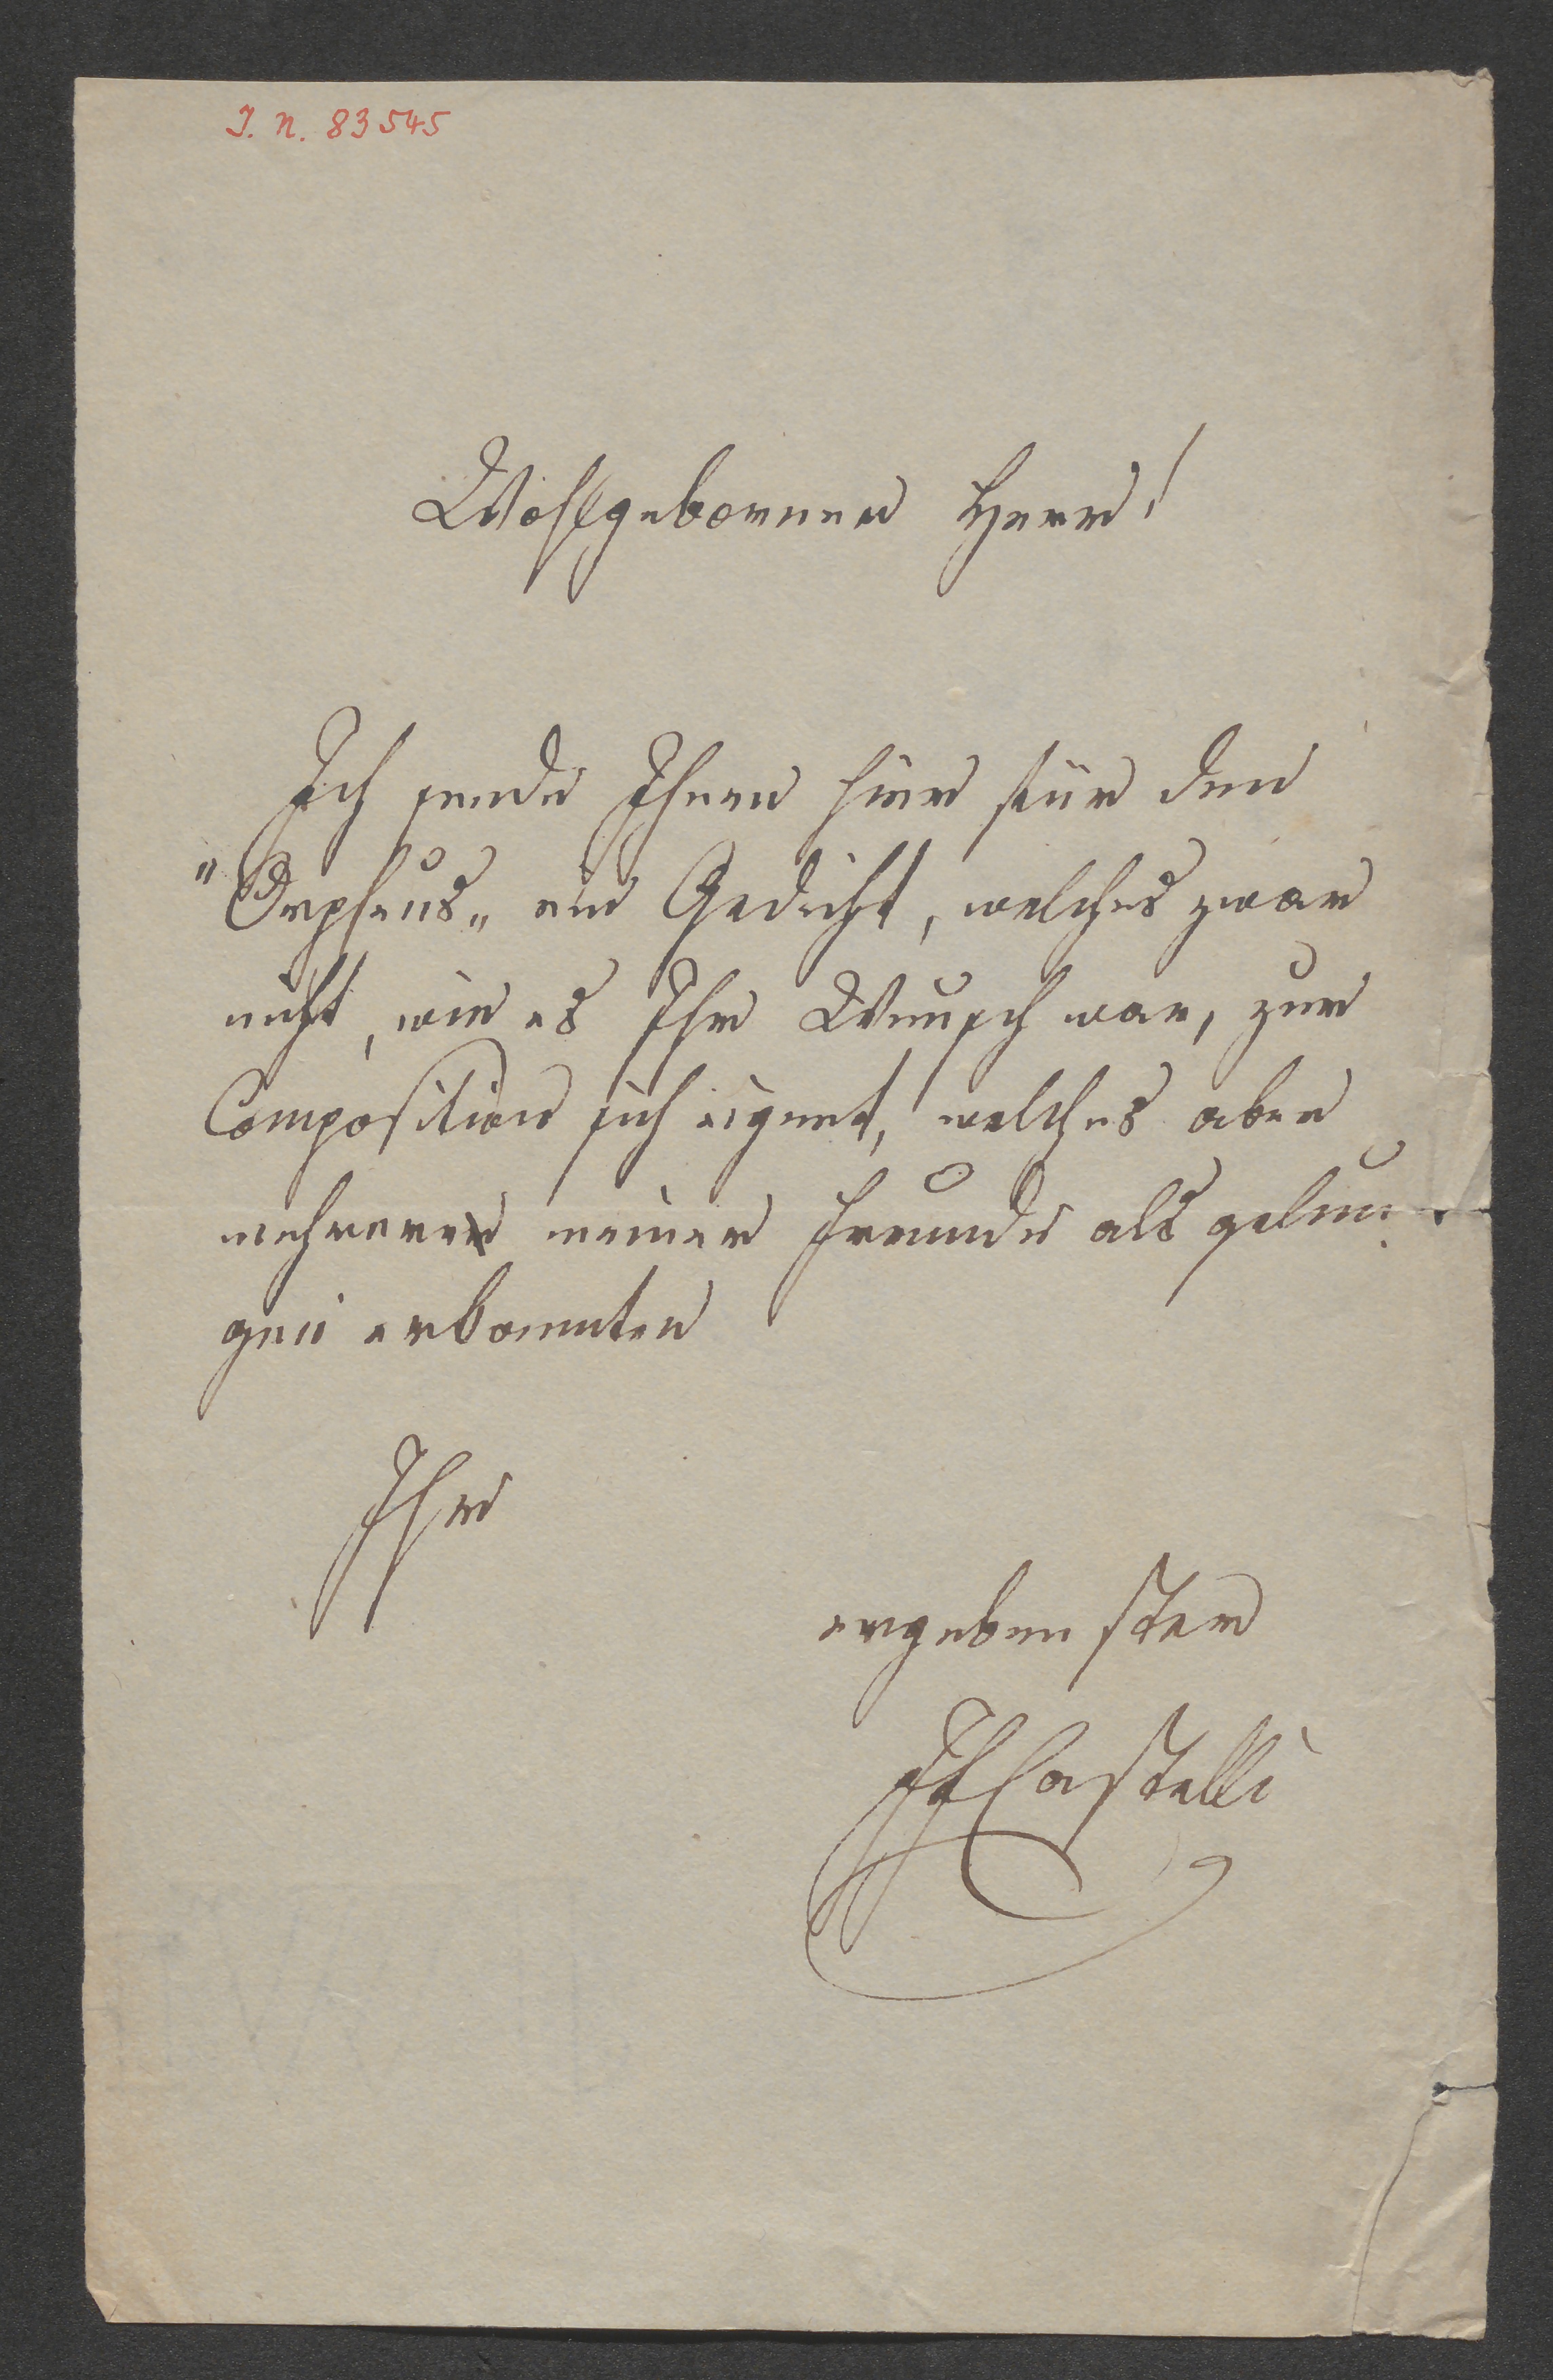 I. N. 83545
Wohlgeborner Herr!
Ich sende Ihnen hier für den
"Orpheus" ein Gedicht, welches zwar
nicht, wie es Ihr Wunsch war, zur
Composition sich eignet, welches aber
mehrere meiner Freunde als gelun-
gen erkannten
Ihr
ergebenster
IFCastelli